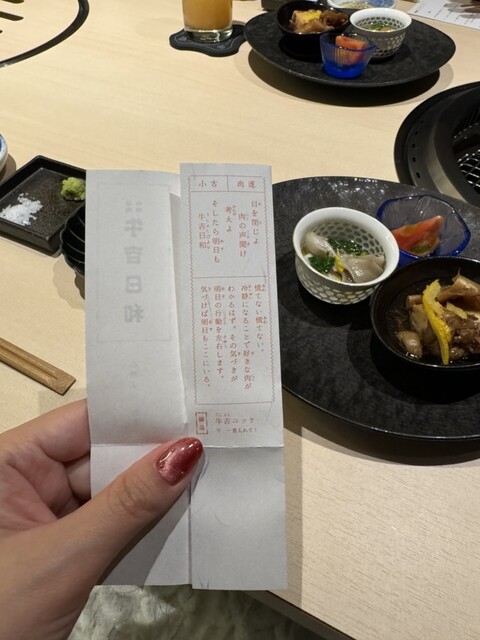 小吉
肉運
目を閉じよ
肉の声聞け
考えよ
そしたら明日も
牛吉日和
慌てない慌てない。
冷静になることで好きな肉が
わかるはず。その気づきが
明日の行動を左右します。
気づけば明日もここにいる。
牛吉ユッケ
牛吉日和